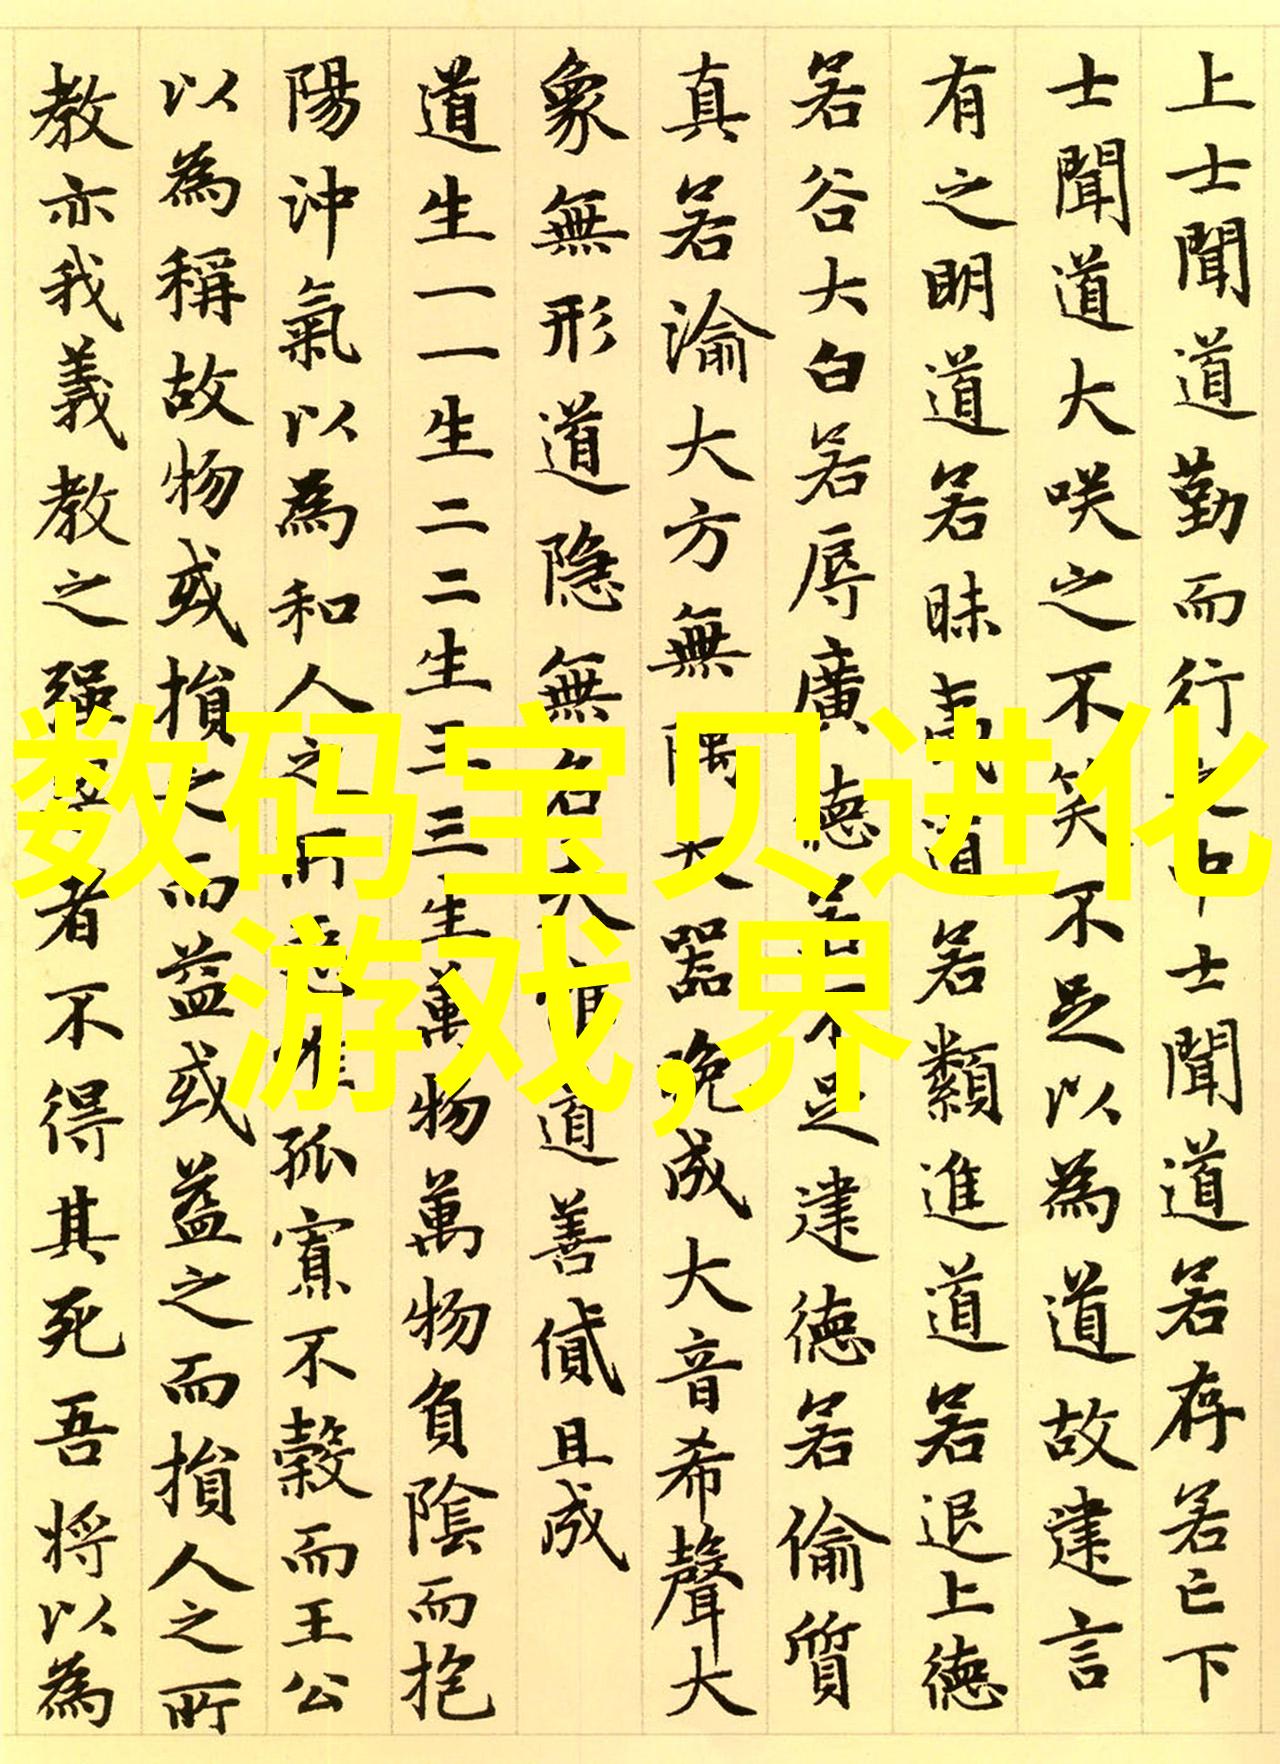 上士聞道勤而行之中士聞道若存若亡下
士聞道大咲之不笑不足以為道故建言
有之明道若昧夷道若纇進道若退上德
若谷大白若辱廣德若不足建德若偷質
真若渝大方無隅大器晚成大音希聲大
象無形道隐無名夫唯道善貸且成
道生一一生二二生三三生萬物萬物負陰而抱
陽沖氣以為和人之所惡唯孤寡不穀而王公
以為稱故物或損之而益或益之而損人之所
教亦我義教之强梁者不得其死吾将以為
数码宝贝进化
游戏,界